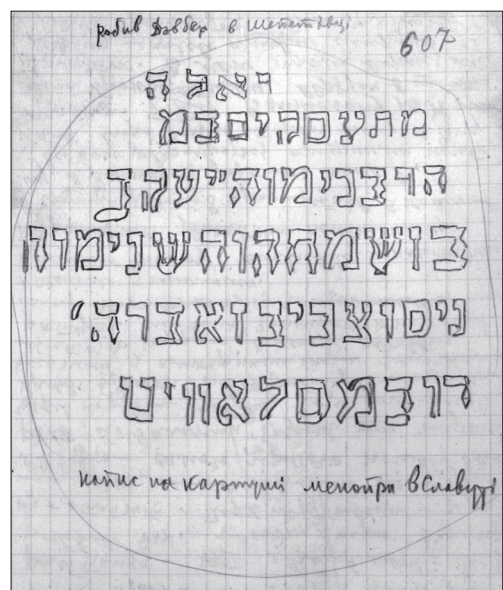 робив Довбер в Шепетівці
607
ואלה
מתעסקיםבמ
הרבנימוהייעקב
בושמחהוהשנימוה
ניסוצביבואברהי
דודבמסלאוויט
напис на картуші менойра в Славуті